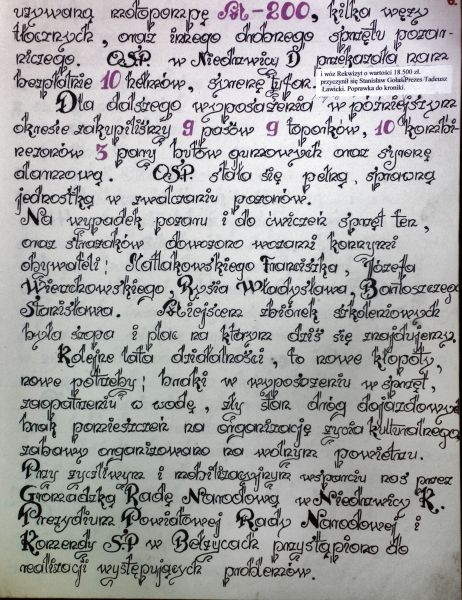 6.
używaną motopompę M-200, kilka węży
tłocznych, oraz innego drobnego sprzętu pożar-
niczego. OSP. w Niedrzwicy D przekazała nam
bezpłatnie 10 hełmów, syrenę
i wóz Rekwizyt o wartości 18.500 zł.
przyczynił się Stanisław Gołaś Prezes Tadeusz
Ławicki. Poprawka do kroniki.
Dla dalszego wyposażenia w późniejszym
okresie zakupiliśmy 9 pasów 9 toporków, 10 kombi-
nezonów 3 pary butów gumowych oraz syrenę
alarmową. OSP. stała się pełną, sprawną
jednostką w zwalczaniu pożarów.
Na wypadek pożaru i do ćwiczeń sprzęt ten,
oraz strażaków dowożono wozami konnymi
obywateli: Kotlakowskiego Franciszka, Józefa
Wierzchowskiego, Rysia Władysława, Bartoszczego
Stanisława. Miejscem zbiórek szkoleniowych
była szopa i plac na którym dziś się znajdujemy.
Kolejne lata działalności, to nowe kłopoty,
nowe potrzeby; braki w wyposażeniu w sprzęt,
zaopatrzeniu w wodę, zły stan dróg dojazdowych
brak pomieszczeń na organizację życia kulturalnego,
zabawy organizowano na wolnym powietrzu.
Przy życzliwym i mobilizacyjnym wsparciu nas przez
Gromadzką Radę Narodową w Niedrzwicy K.
Prezydium Powiatowej Rady Narodowej i
Komendy S.P w Bełżycach przystąpiono do
realizacji występujących problemów.